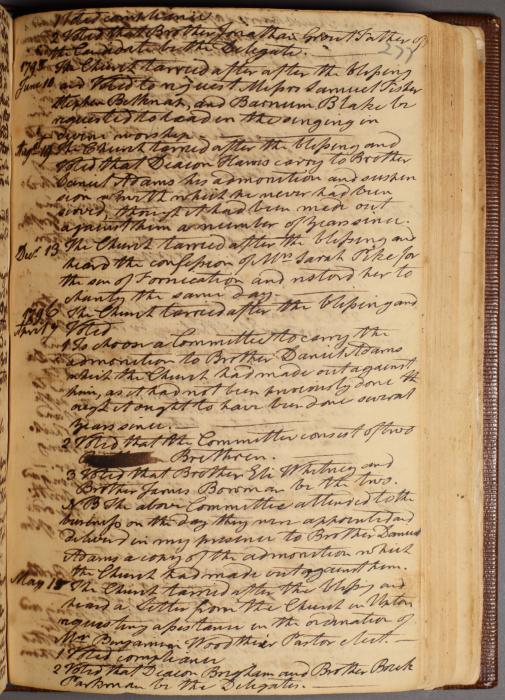 1 Voted compliance
2 Voted that Brother Jonathan Grout Father of
the Candidate be the Delegate.
277
1795 The Church tarried after after the blessing
June 10 and Voted to request Messrs Samuel Fisher
Stephen Belknap, and Barnum Blake be
requested to lead in the singing in
divine worship
The Church tarried after the blessing and
Voted that Deacon Hawes carry to Brother
Daniel Adams his admonition and suspen
sion with which he never had been
served, though it had been made out
against him a number of years since.
Decr. 13 The Church tarried after the blessing and
heard the confession of Mrs Sarah Pike for
the sin of Fornication and restored her to
charity the same day
1796 The Church tarried after the blessing and
April 17 Voted
1 To choose a Committee to carry the
admonition to Brother Daniel Adams
which the Church had made out against
him, as it had not been previously done tho
ought to have been done several
years since.
2 Voted that the Committee consist of two
Brethren.
3 Voted that Brother Eli Whitney and
Brother James Bowman be the two.
NB The above Committee attended to the
business on the day they were appointed and
delivered in my presence to Brother Daniel
Adams a copy of the admonition which
the Church had made out against him.
May 15 The Church tarried after the blessg and
heard a Letter from the Church in Upton
requesting assistance in the ordination of
Mr Benjamin Wood their Pastor elect
1 Voted compliance
2 Voted that Deacon Brigham and Brother Breck
Parkman be the Delegates.